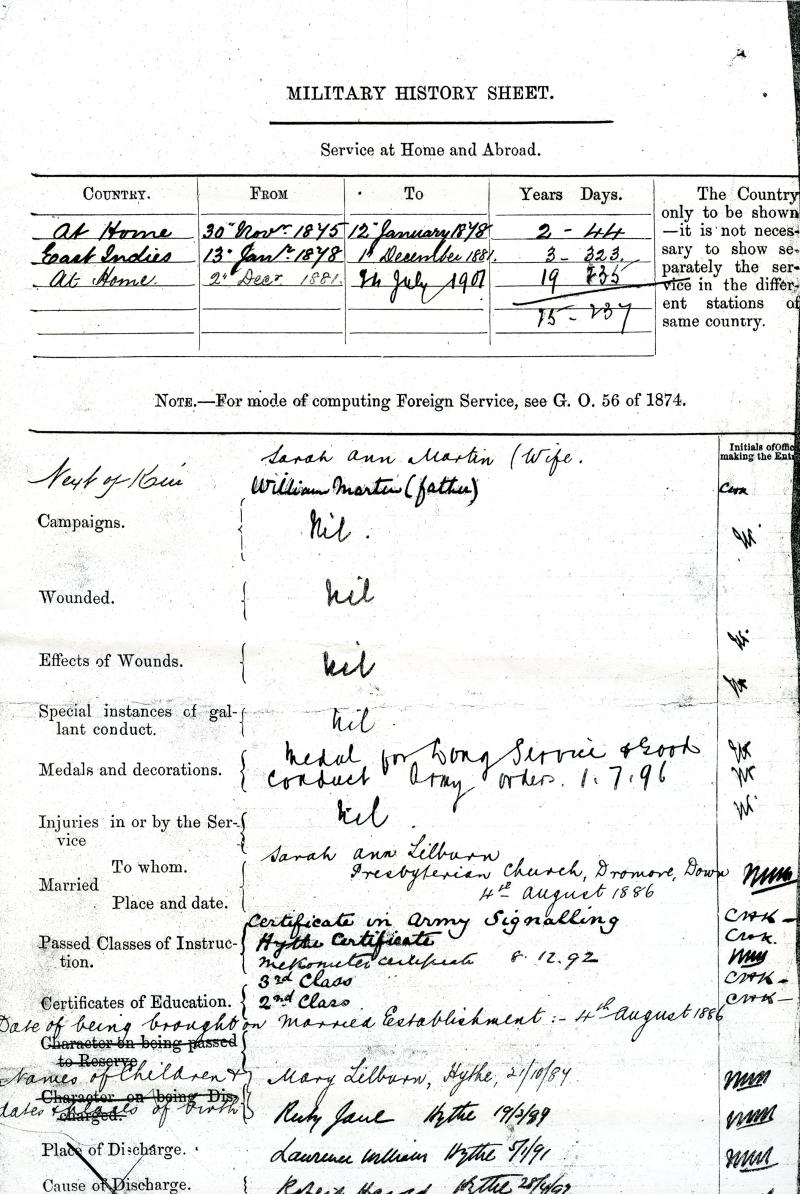 MILITARY HISTORY SHEET.
Service at Home and Abroad.
COUNTRY. FROM To Years Days.
At Home 30th Novr. 1875 12th January 1878 2 - 44
East Indies 13th Janr. 1878 1st December 1881. 3 - 323.
At Home. 2d Decr. 1881. 24 July 1901 19 235
25 - 237
The Country
only to be shown
—it is not neces-
sary to show se-
parately the ser-
vice in the differ-
ent stations of
same country.
NOTE.—For mode of computing Foreign Service, see G. O. 56 of 1874.
Initials of Offic
making the Entr
Next of Kin
Sarah Ann Martin (Wife.
William Martin (father)
Campaigns. Nil.
Wounded. Nil
Effects of Wounds. Nil
Special instances of gal-
lant conduct. Nil
Medals and decorations. Medal for Long Service & Good
Conduct Army orders. 1.7.96
Injuries in or by the Ser-
vice Nil.
Married
To whom. Sarah Ann Lilburn
Place and date. Presbyterian Church, Dromore, Down
4th August 1886
Passed Classes of Instruc-
tion.
Certificate in Army Signalling
Hythe Certificate
Mekometer Certificate 8.12.92
Certificates of Education. 3rd Class
2nd Class
Date of being brought on Married Establishment :- 4th August 1886
Character on being passed
to Reserve
Names of Children &
dates & places of birth
Character on being Dis-
charged.
Mary Lilburn, Hythe, 21/10/87
Ruby Jane Hythe 19/2/89
Place of Discharge. Laurence William Hythe 5/1/91
Cause of Discharge. Robert Hythe